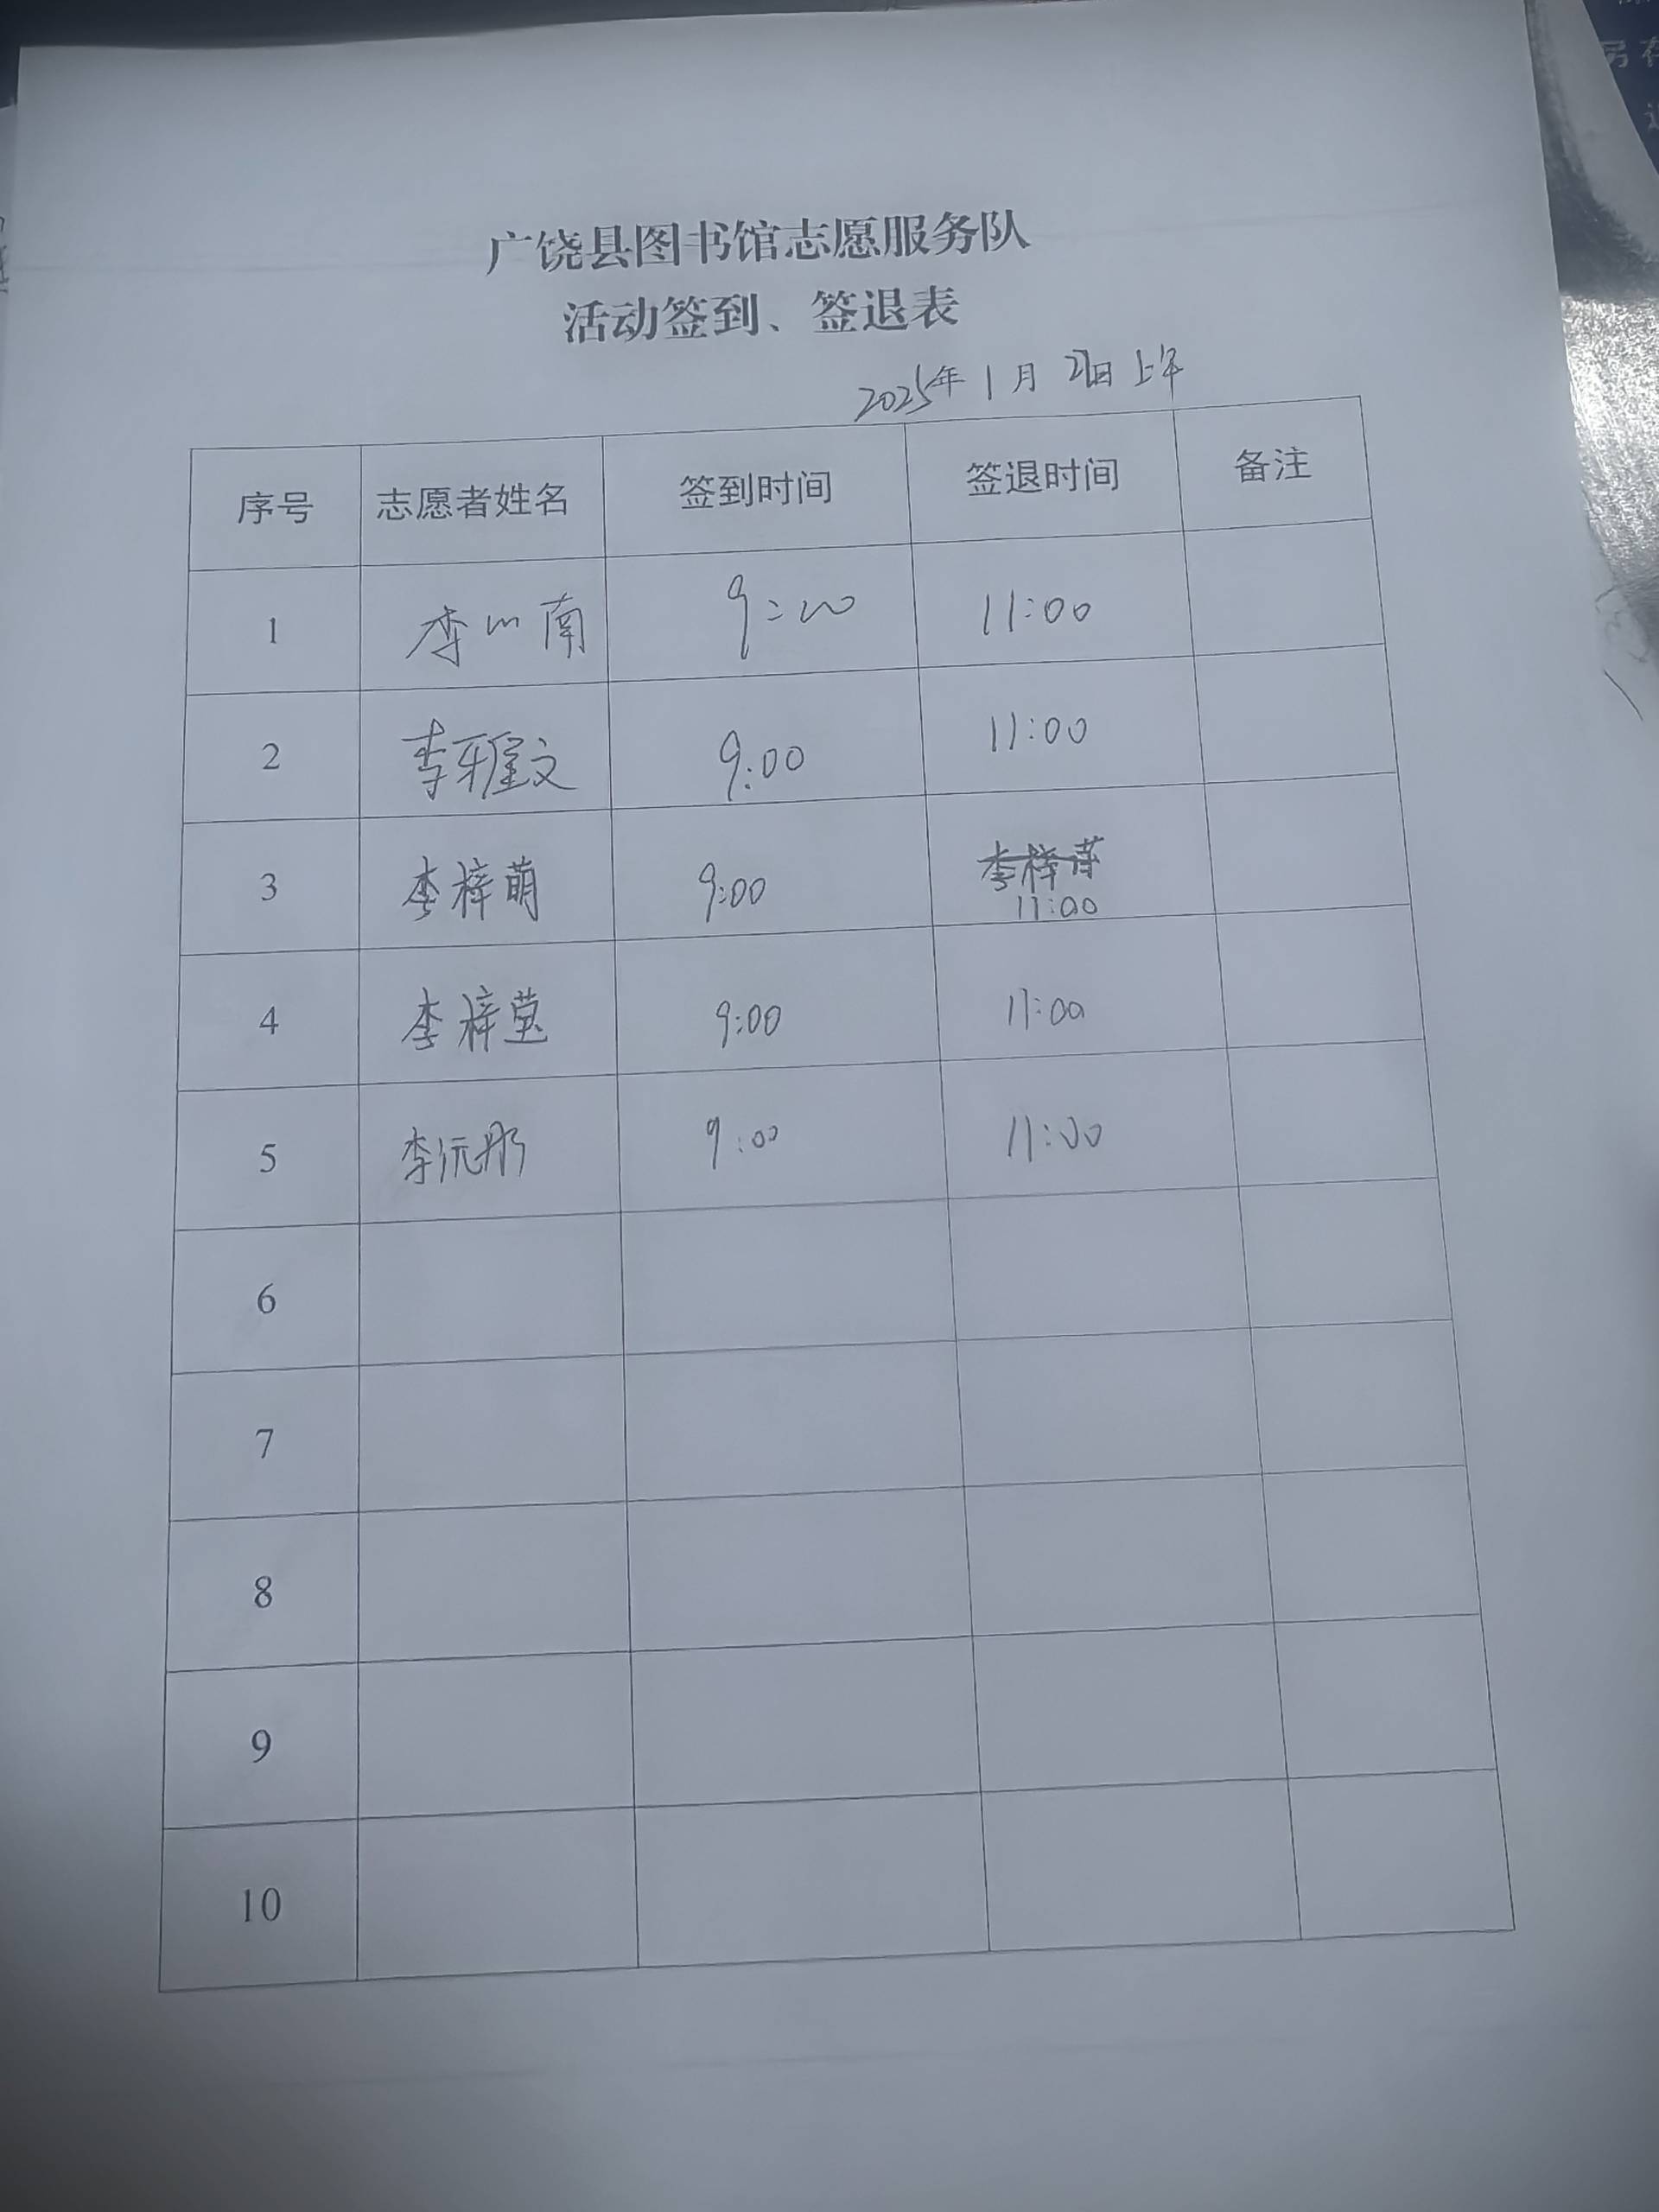 广饶县图书馆志愿服务队
活动签到、签退表
2025年1月21日上午
序号 志愿者姓名 签到时间 签退时间 备注
1 李 南 9:00 11:00
2 李雅文 9:00 11:00
3 李梓萌 9:00 李梓萌
11:00
4 李梓莹 9:00 11:00
5 李沅彤 9:00 11:00
6
7
8
9
10
另存